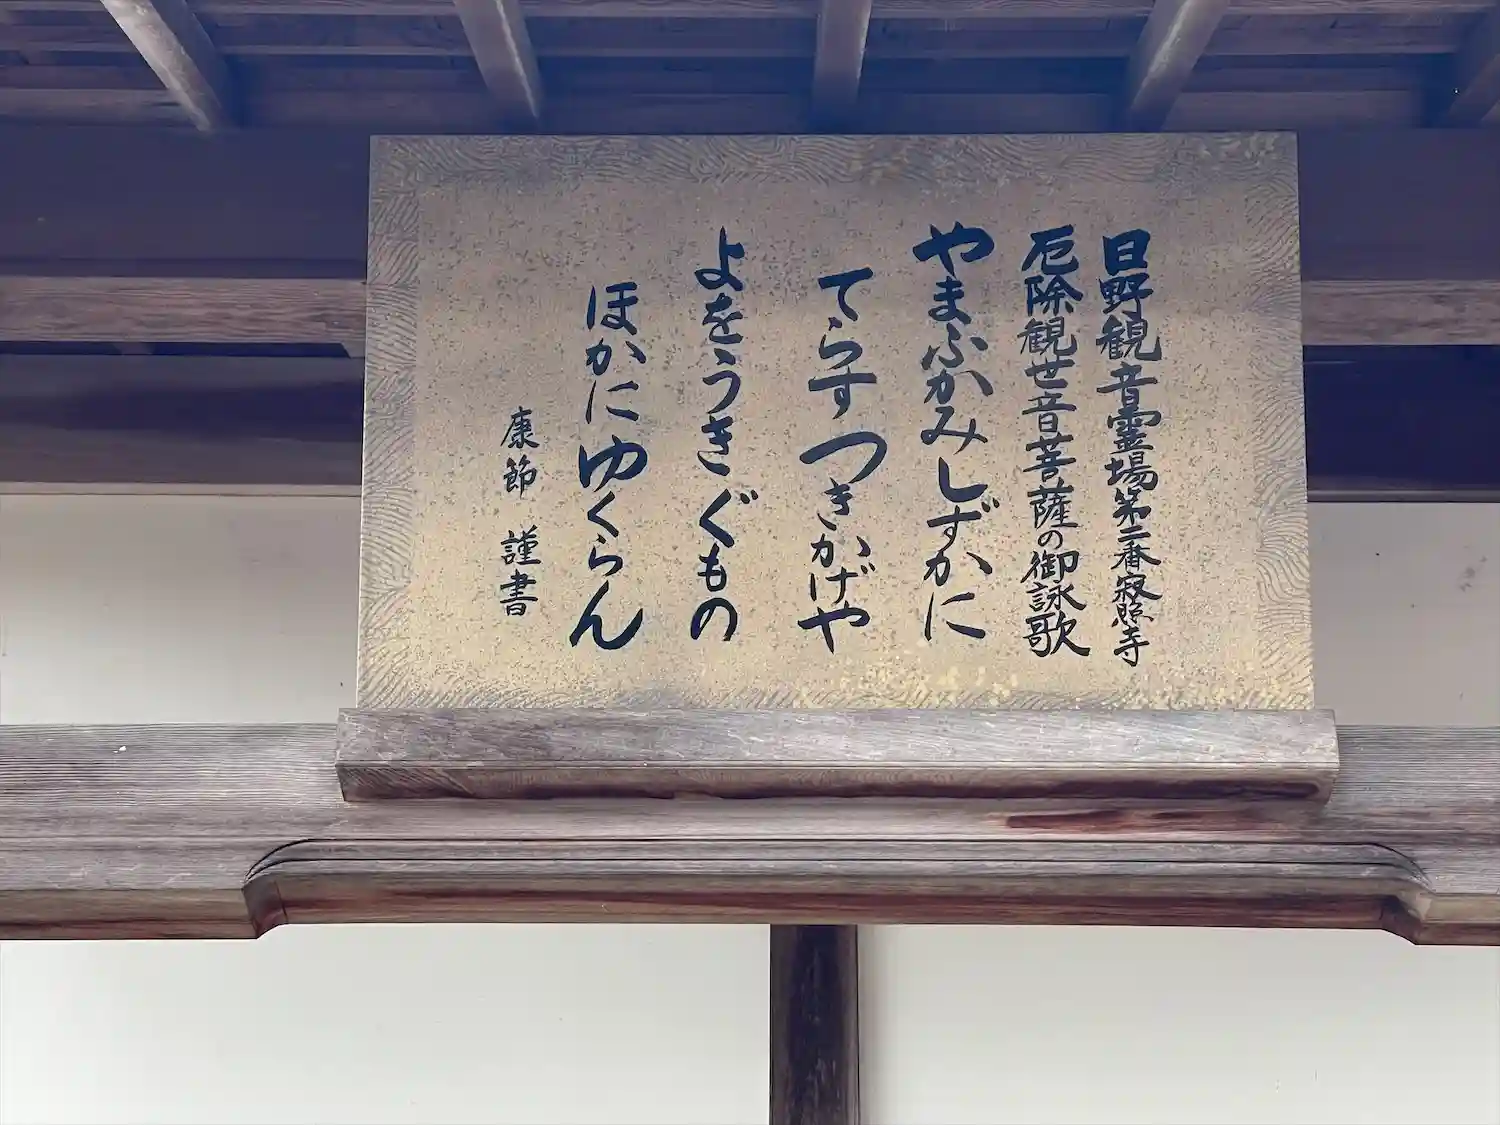 日野観音霊場第二番寂照寺
厄除観世音菩薩の御詠歌
やまふかみしずかに
てらすつきかげや
よをうきぐもの
ほかにゆくらん
康節 謹書